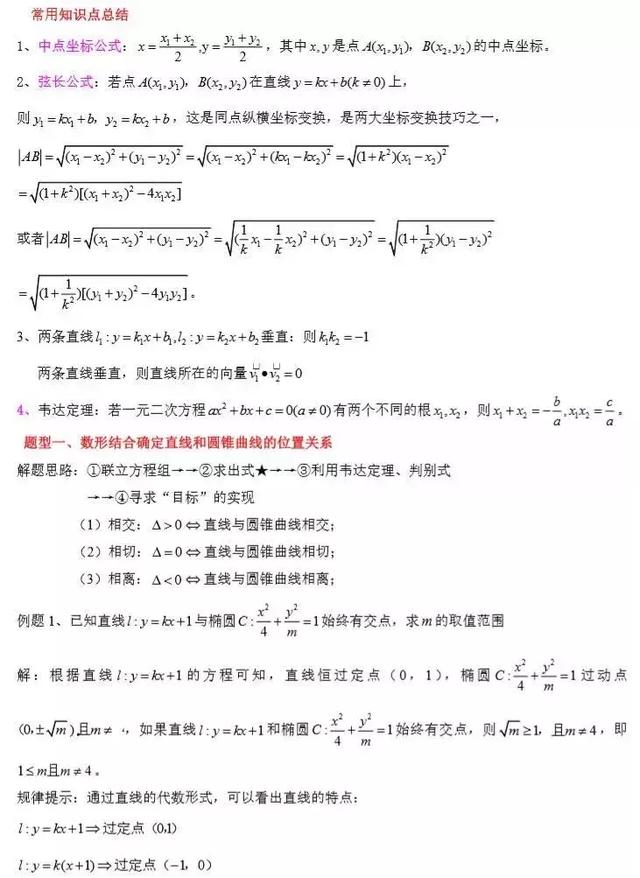 常用知识点总结
1、中点坐标公式：x = (x₁ + x₂)/2, y = (y₁ + y₂)/2，其中 x, y 是点 A(x₁, y₁)，B(x₂, y₂) 的中点坐标。
2、弦长公式：若点 A(x₁, y₁)，B(x₂, y₂) 在直线 y = kx + b(k ≠ 0) 上，
则 y₁ = kx₁ + b，y₂ = kx₂ + b，这是同点纵横坐标变换，是两大坐标变换技巧之一，
|AB| = √((x₁ − x₂)² + (y₁ − y₂)²) = √((x₁ − x₂)² + (kx₁ − kx₂)²) = √((1 + k²)(x₁ − x₂)²)
= √((1 + k²)[(x₁ + x₂)² − 4x₁x₂])
或者 |AB| = √((x₁ − x₂)² + (y₁ − y₂)²) = √((1/k x₁ − 1/k x₂)² + (y₁ − y₂)²) = √((1 + 1/k²)(y₁ − y₂)²)
= √((1 + 1/k²)[(y₁ + y₂)² − 4y₁y₂])。
3、两条直线 l₁ : y = k₁x + b₁, l₂ : y = k₂x + b₂ 垂直：则 k₁k₂ = −1
两条直线垂直，则直线所在的向量 v₁ • v₂ = 0
4、韦达定理：若一元二次方程 ax² + bx + c = 0(a ≠ 0) 有两个不同的根 x₁, x₂，则 x₁ + x₂ = −b/a, x₁x₂ = c/a。
题型一、数形结合确定直线和圆锥曲线的位置关系
解题思路：①联立方程组→→②求出式★→→③利用韦达定理、判别式
→→④寻求“目标”的实现
（1）相交：Δ > 0 ⇔ 直线与圆锥曲线相交；
（2）相切：Δ = 0 ⇔ 直线与圆锥曲线相切；
（3）相离：Δ < 0 ⇔ 直线与圆锥曲线相离；
例题1、已知直线 l : y = kx + 1 与椭圆 C : x²/4 + y²/m = 1 始终有交点，求 m 的取值范围
解：根据直线 l : y = kx + 1 的方程可知，直线恒过定点（0，1），椭圆 C : x²/4 + y²/m = 1 过动点
(0, ±√m), 且 m ≠ ，如果直线 l : y = kx + 1 和椭圆 C : x²/4 + y²/m = 1 始终有交点，则 √m ≥ 1，且 m ≠ 4，即
1 ≤ m 且 m ≠ 4。
规律提示：通过直线的代数形式，可以看出直线的特点：
l : y = kx + 1 ⇒ 过定点（0,1）
l : y = k(x + 1) ⇒ 过定点（−1，0）